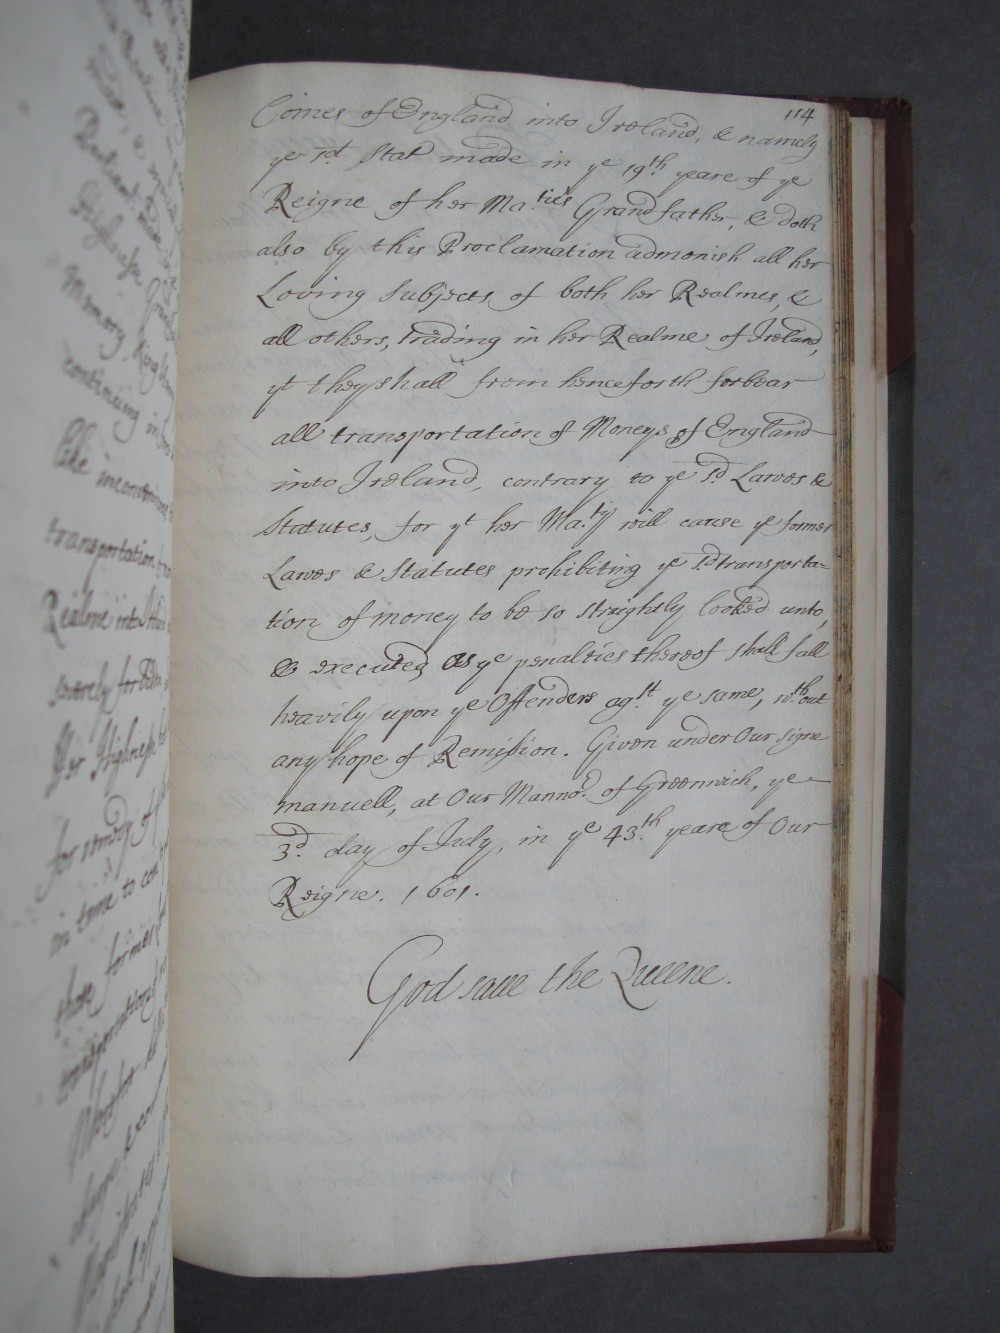 114
Coines of England into Ireland, & namely
ye sd. Stat made in ye 19th. yeare of ye
Reigne of her Ma.ties Grandfather, & doth
also by this Proclamation admonish all her
Loving Subjects of both her Realmes, &
all others, trading in her Realme of Ireland,
yt they shall from henceforth forbear
all transportation of Moneys of England
into Ireland, contrary to ye sd. Lawes &
Statutes, for yt her Ma.ty will cause ye former
Lawes & Statutes prohibiting ye sd. transporta=
tion of money to be so straightly looked unto,
& executed, as ye penalties thereof shall fall
heavily upon ye Offenders ag.st ye same, wth.out
any hope of Remission. Given under Our signe
manuell, at Our Manno.r of Greenwich, ye
3d. day of July, in ye 43.th yeare of Our
Reigne. 1601.
God save the Queene.
Memory, King
continuing in
like
transportation
Realme into
for
in time to
those former
transportation